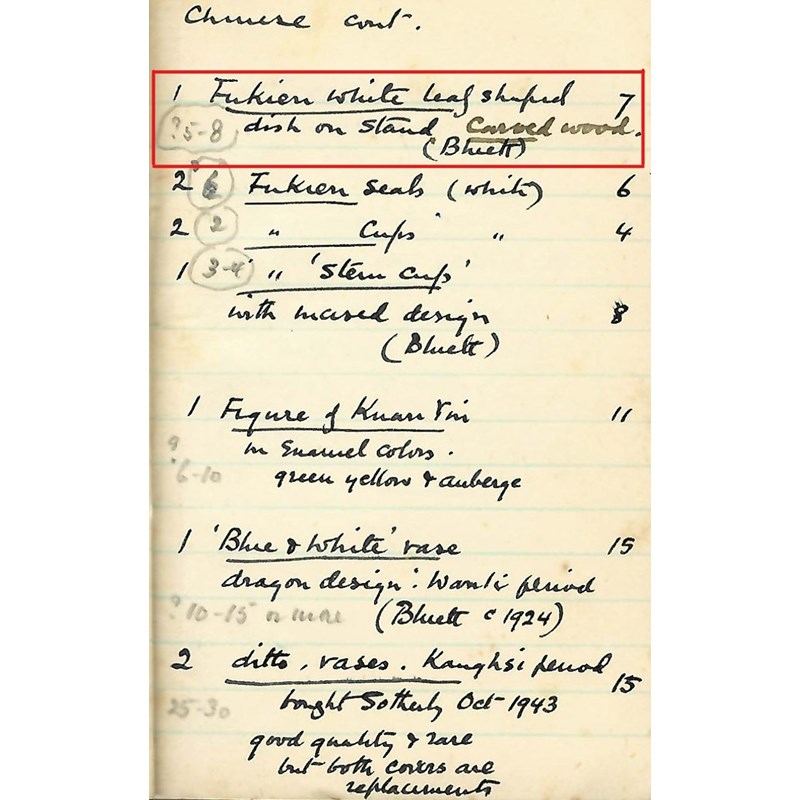 Chinese cont.
1 Fukien white leaf shaped 7
?5-8 dish on stand Carved wood.
(Bluett)
2 6 Fukien seals (white) 6
2 2 " Cups " 4
1 3-4 " 'Stem cups'
with incised design 8
(Bluett)
1 Figure of Kuan Yin 11
in Enamel colors.
?6-10 green yellow & auberge
1 'Blue & White' vase 15
dragon design: Wanli period
?10-15 or more (Bluett c 1924)
2 ditto, vases. Kanghsi period 15
bought Sotheby Oct 1943
25-30
good quality & rare
but both covers are
replacements